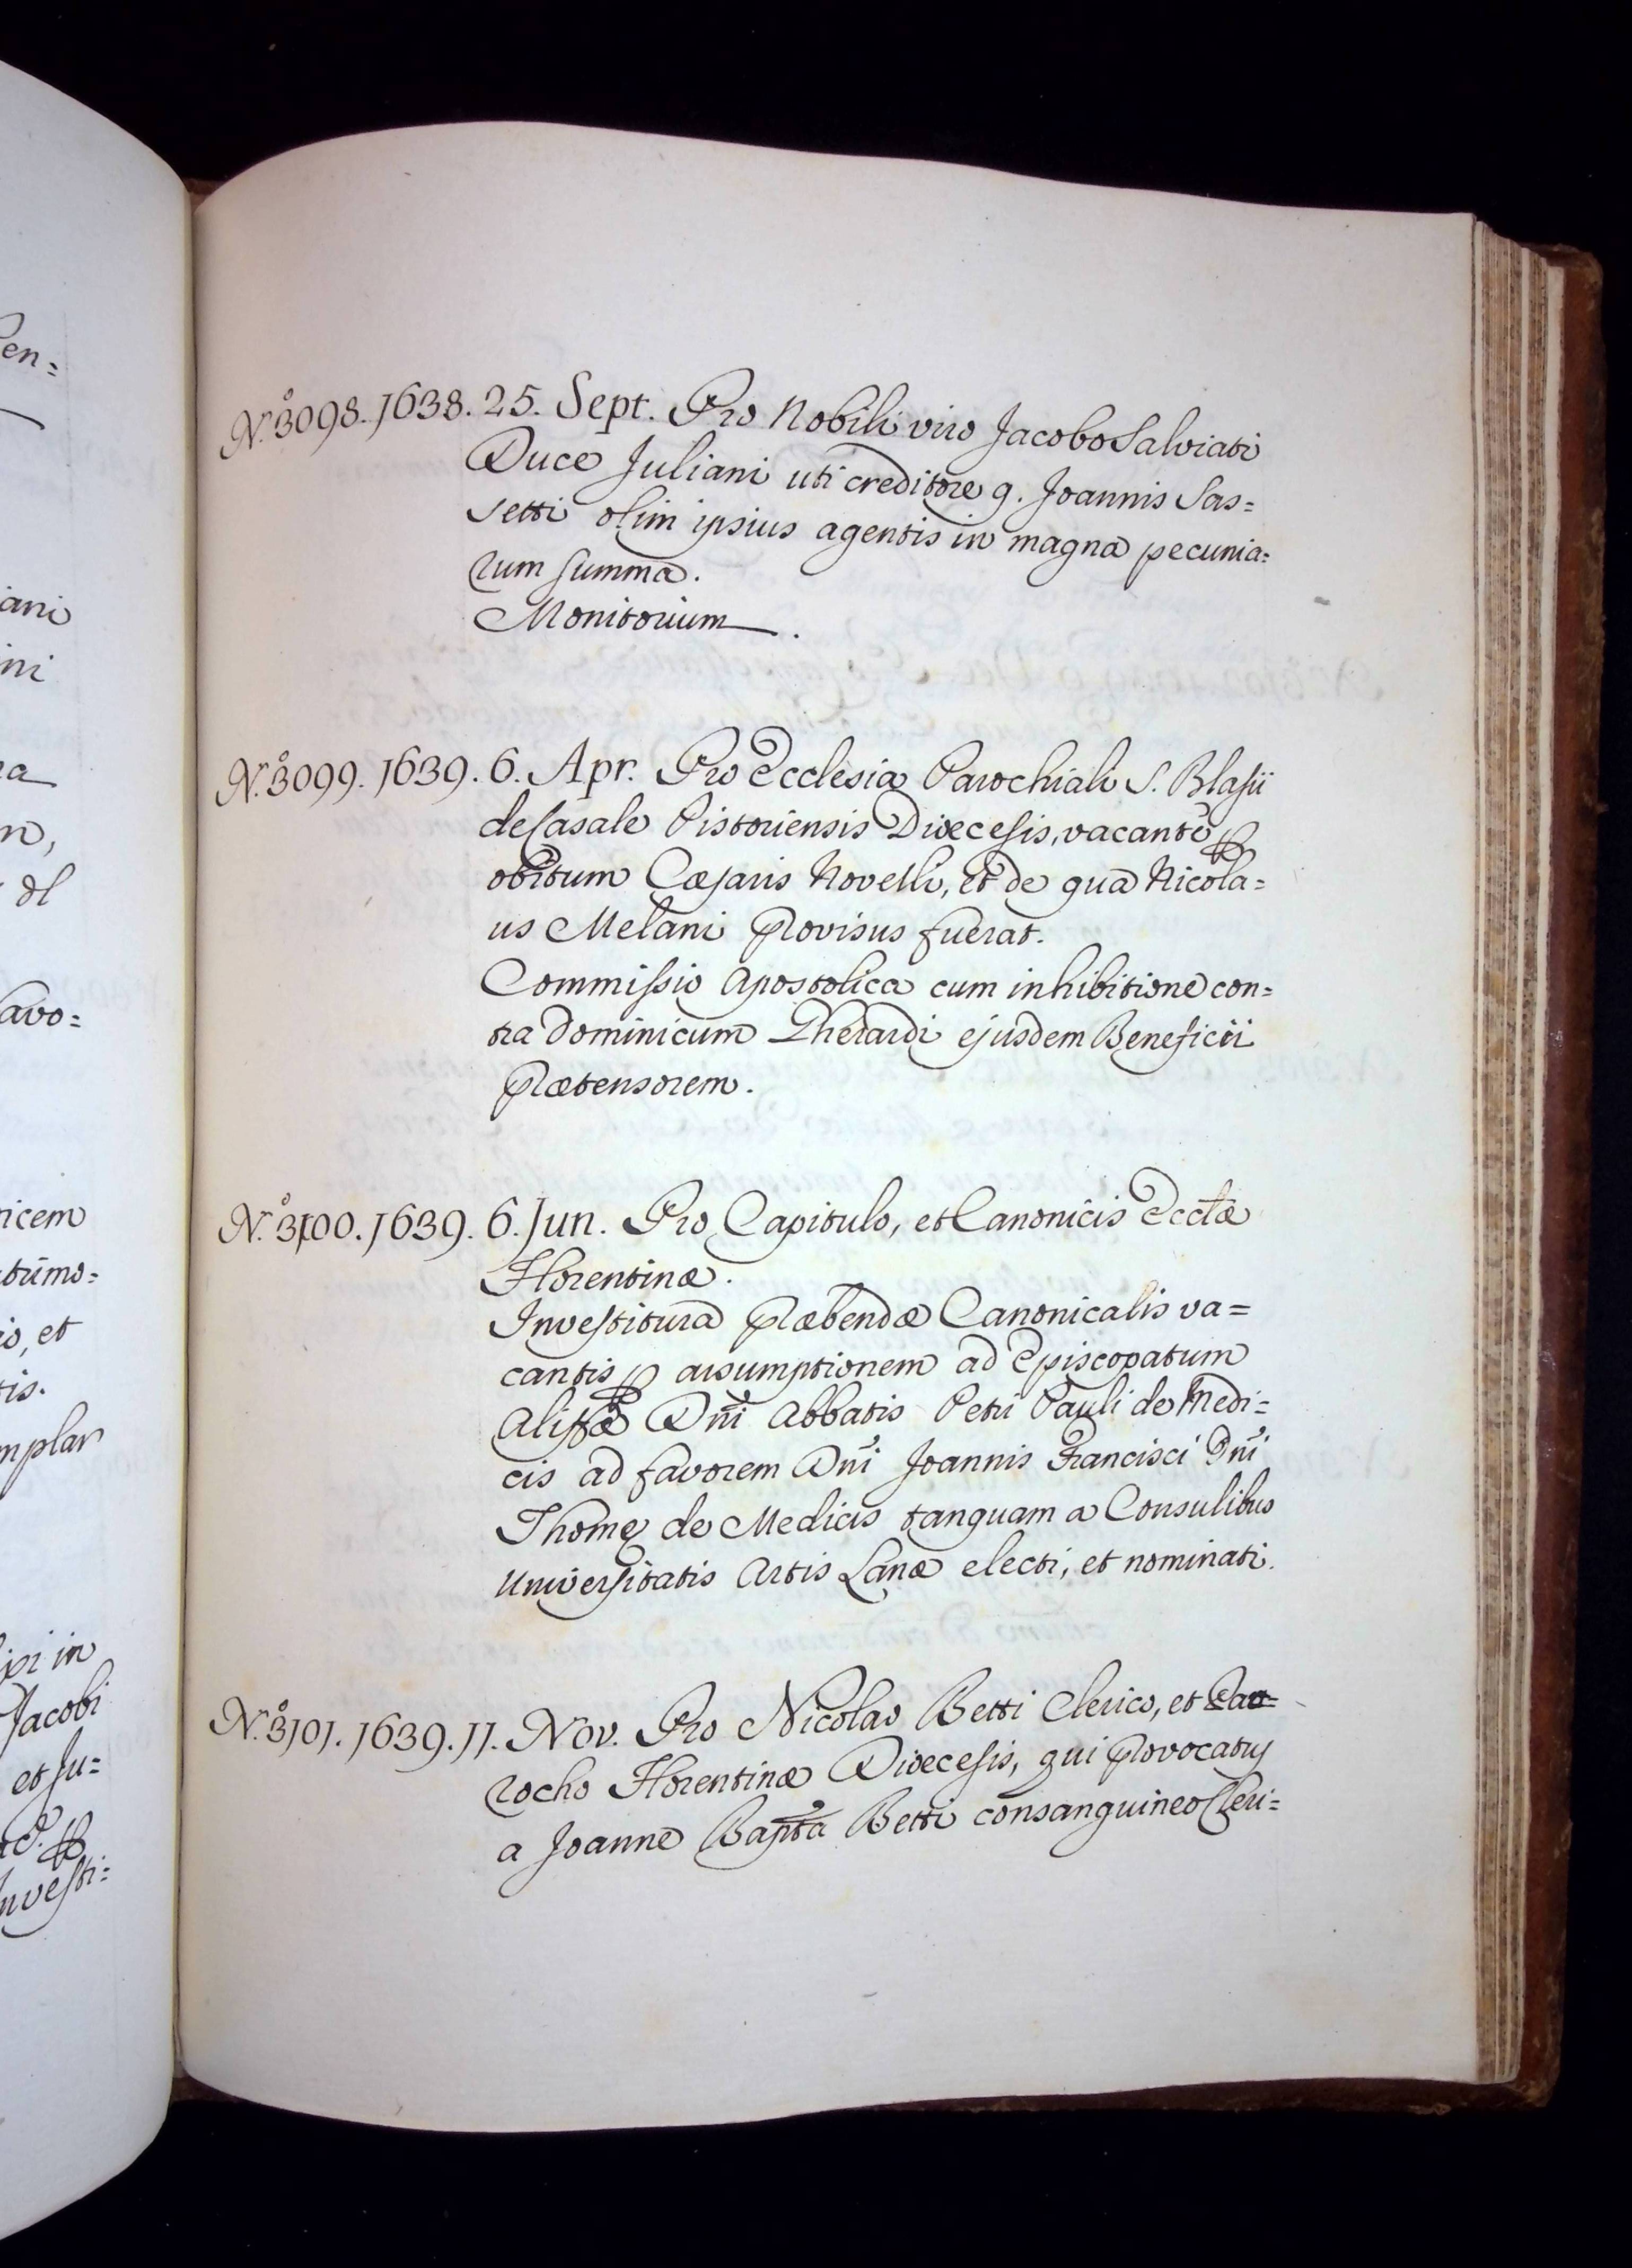 en=
ani
ni
a
n,
dl
avo=
icem
tumo=
io, et
tis.
mplar
ipi in
Jacobi
et Ju=
nvesti=
N.º 3098. 1638. 25. Sept. Pro Nobili viro Jacobo Salviati
Duce Juliani uti creditore q. Joannis Sas=
setti olim ipsius agentis in magna pecunia=
rum summa.
Monitorium.
N.º 3099. 1639. 6. Apr. Pro Ecclesia Parochiali S. Blasii
de Casale Pistoriensis Diœcesis, vacante ꝑ
obitum Cæsaris Novelli, et de qua Nicola=
us Melani provisus fuerat.
Commissio Apostolica cum inhibitione con=
tra Dominicum Gherardi ejusdem Beneficii
prætensorem.
N.º 3100. 1639. 6. Jun. Pro Capitulo, et Canonicis Ecclæ
Florentinæ.
Investitura præbendæ Canonicalis va=
cantis ꝑ assumptionem ad Episcopatum
Alifæ Dñi Abbatis Petri Pauli de Medi=
cis ad favorem Dñi Joannis Francisci Dñi
Thomę de Medicis tanquam a Consulibus
Universitatis Artis Lanæ electi, et nominati.
N.º 3101. 1639. 11. Nov. Pro Nicolao Betti Clerico, et Pa=
rocho Florentinæ Diœcesis, qui provocatus
a Joanne Bapta Betti consanguineo Cleri=